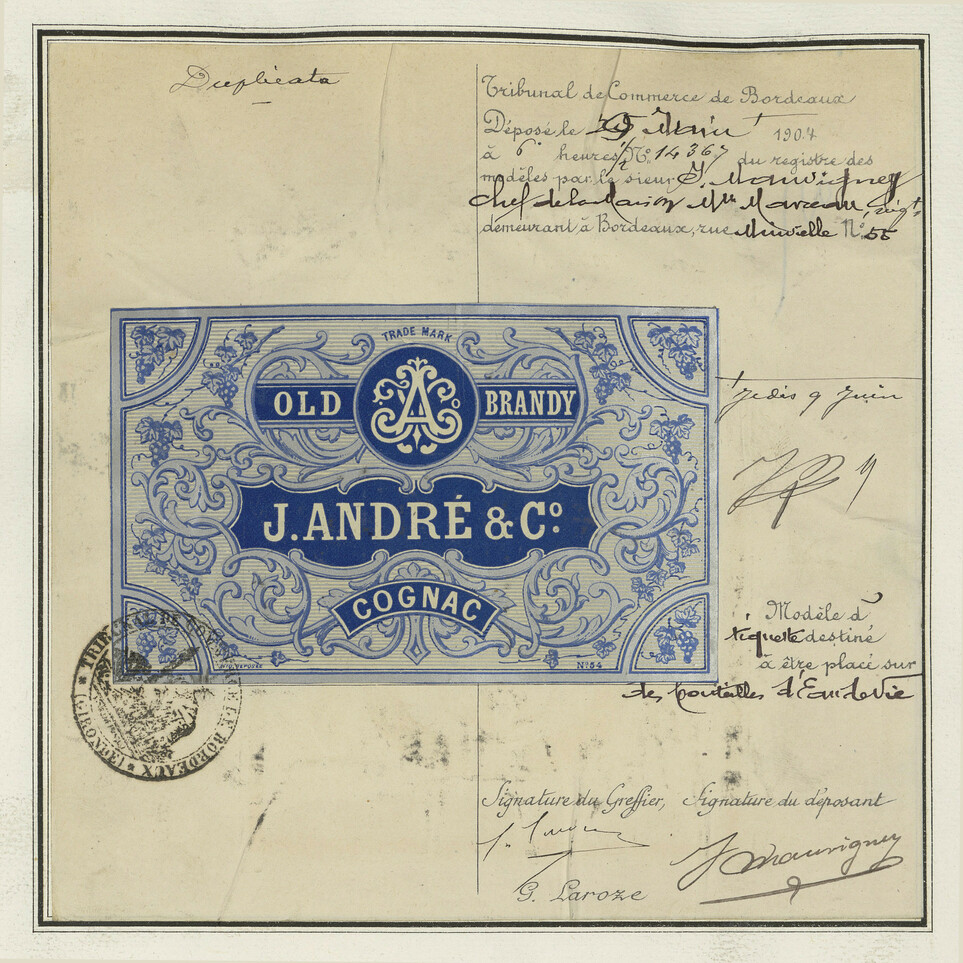 Duplicata
Tribunal de Commerce de Bordeaux
Déposé le 1904
à 6 heures 1/2 N° 14367 du registre des
modèles par le sieur J. Mauvigney
chef de la Maison Marceau
demeurant à Bordeaux, rue Minvielle N° 55
TRADE MARK
OLD A BRANDY
J. ANDRÉ & Cº
COGNAC
Nº 54
9 Juin
Modèle d'
étiquette destiné
à être placé sur
des bouteilles d'Eau de Vie
TRIBUNAL DE COMMERCE DE BORDEAUX
(GIRONDE)
Signature du Greffier, Signature du déposant
J. Mauvigney
G. Laroze